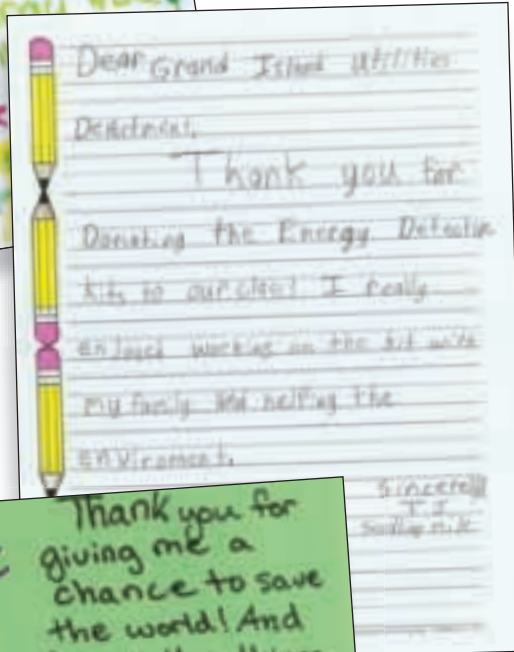 Dear Grand Island Utilities
Thank you for
Donating the Energy Detective
kits to our class! I really
enjoyed working on the kit with
my family and helping the
enviroment.
Sincerely
TJ
Thank you for
giving me a
chance to save
the world! And